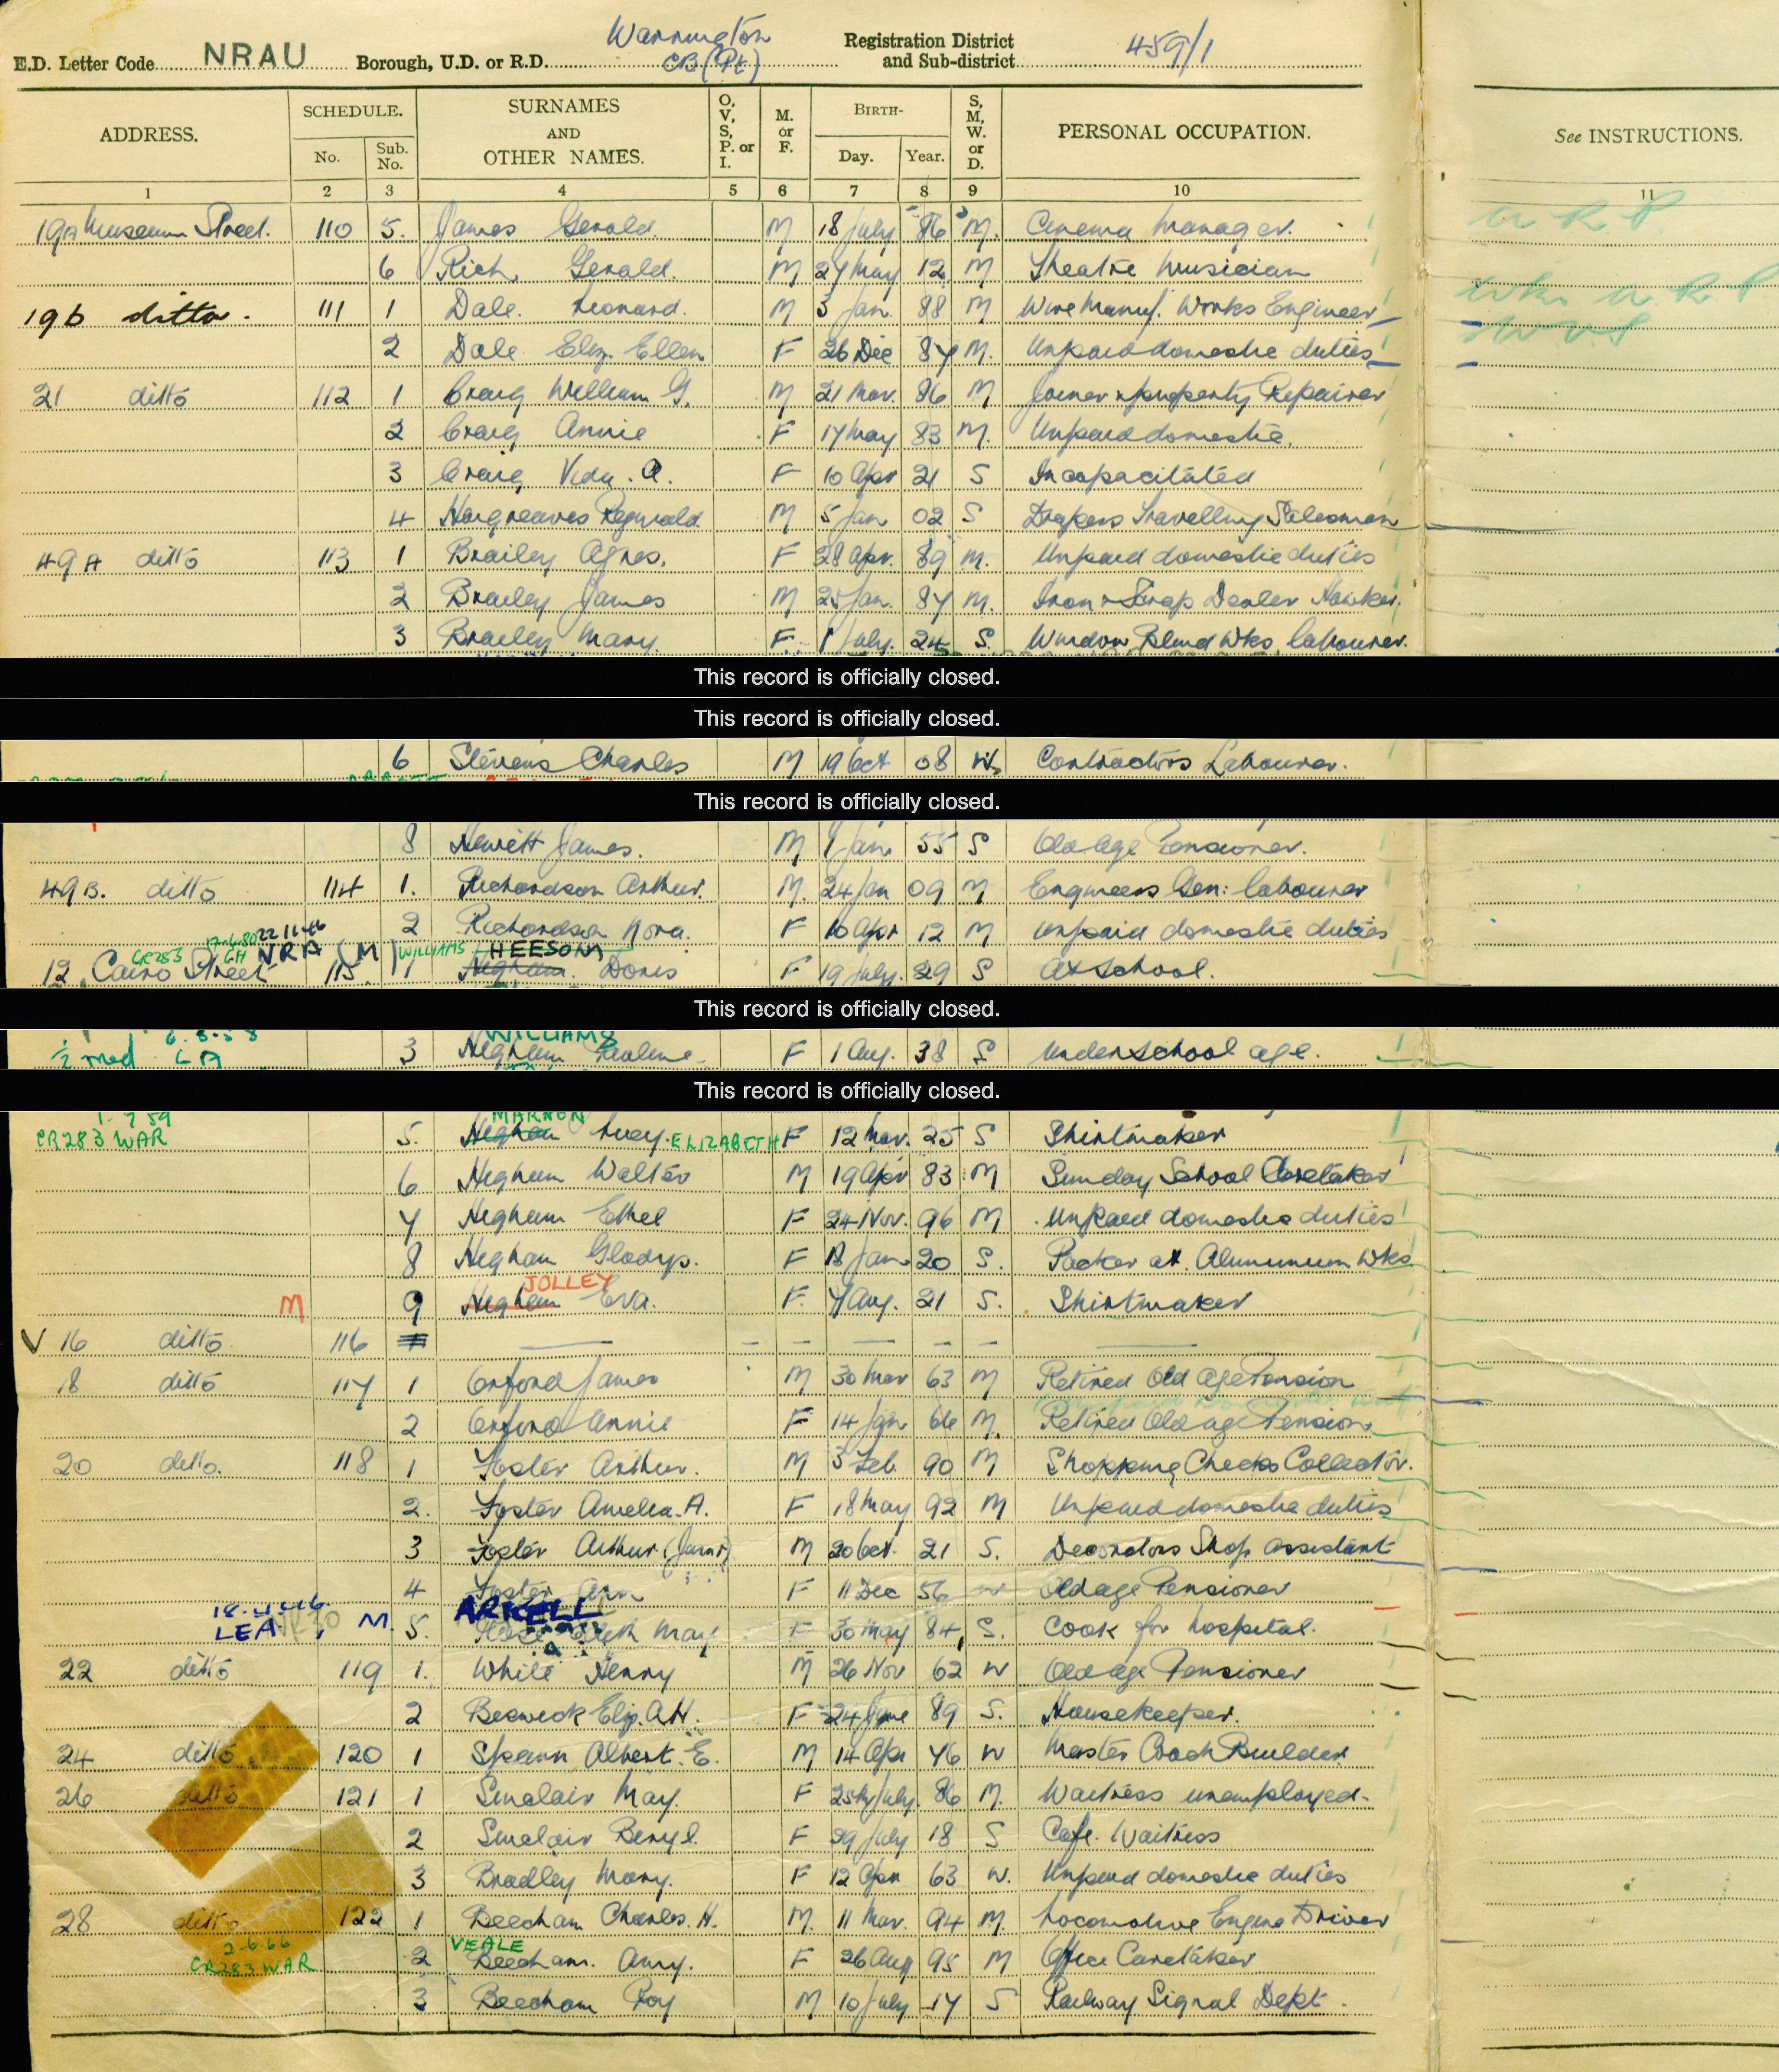 E.D. Letter Code NRAU Borough, U.D. or R.D. Warrington CB (Pt) Registration District and Sub-district 459/1
ADDRESS. SCHEDULE. No. Sub. No. SURNAMES AND OTHER NAMES. O, V, S, P. or I. M. or F. BIRTH- Day. Year. S, M, W. or D. PERSONAL OCCUPATION. See INSTRUCTIONS.
1 2 3 4 5 6 7 8 9 10 11
19A Museum Street. 110 5. James Gerald. M 18 July 86 M. Cinema Manager. A R P
6 Rich Gerald. M 27 May 12 M Theatre Musician
19b ditto. 111 1 Dale. Leonard. M 3 Jan. 88 M Wire Manuf. Works Engineer A. R P
2 Dale Eliz. Ellen F 26 Dec 87 M. Unpaid domestic duties W V S
21 ditto 112 1 Craig William G. M 21 Mar. 86 M Joiner & property Repairer
2 Craig Annie F 17 May 83 M. Unpaid domestic.
3 Craig Vida. A. F 10 Apr 21 S Incapacitated
4 Hargreaves Reginald M 5 Jan 02 S Drapers Travelling Salesman
49A ditto 113 1 Brailey Agnes. F 28 Apr. 89 M. Unpaid domestic duties
2 Brailey James M 25 Jan. 87 M. Iron & Scrap Dealer Hawker.
3 Brailey Mary. F. 1 July. 24 S. Window Blind Wks labourer.
This record is officially closed.
This record is officially closed.
6 Stevens Charles M 19 Oct 08 W Contractors Labourer.
This record is officially closed.
8 Hewitt James. M 1 Jan 55 S Old age Pensioner.
49B. ditto 114 1. Richardson Arthur. M. 24 Jan 09 M Engineers Gen: labourer
2 Richardson Nora. F 10 Apr 12 M Unpaid domestic duties
CR283 GH 22 11 46 NRA (M) WILLIAMS HEESOM
12 Cairo Street 115 1 Higham. Doris F 19 July. 29 S At School.
This record is officially closed.
6.3.58 WILLIAMS
LA 3 Higham F 1 Aug. 38 S Under school age.
This record is officially closed.
1.7 59
CR283 WAR 5. Higham Lucy. ELIZABETH F 12 Mar. 25 S Shirtmaker
6 Higham Walter M 19 Apr 83 M Sunday School Caretaker
7 Higham Ethel F 24 Nov. 96 M Unpaid domestic duties
8 Higham Gladys. F 18 Jan 20 S. Packer at Aluminium Wks
JOLLEY
M 9 Higham Eva. F. 7 Aug. 21 S. Shirtmaker
V 16 ditto 116 — — — — — — —
18 ditto 117 1 Orford James M 30 Mar 63 M Retired Old Age Pension
2 Orford Annie F 14 Jan 66 M. Retired Old age Pension
20 ditto. 118 1 Foster Arthur. M 3 Feb. 90 M Shopping Checks Collector.
2. Foster Amelia. A. F 18 May 92 M Unpaid domestic duties
3 Foster Arthur (Junr) M 20 Oct. 21 S. Decorators Shop assistant
4 Foster Ann F 11 Dec 56 W Old age Pensioner
LEA M. 5. ARKELL Edith May F 30 May 84 S. Cook for hospital.
22 ditto 119 1. White Henry M 26 Nov 62 W Old age Pensioner
2 Beswick Eliz. A H. F 24 June 89 S. Housekeeper.
24 ditto 120 1 Spann Albert. E. M 14 Apr 76 W Master Coach Builder
26 ditto 121 1 Sinclair May. F 25 July. 86 M. Waitress unemployed.
2 Sinclair Beryl. F 29 July 18 S Cafe. Waitress
3 Bradley Mary. F 12 Apr 63 W. Unpaid domestic duties
28 ditto 122 1 Beecham Charles. H. M. 11 Mar. 94 M. Locomotive Engine Driver
2-6-66 VEALE
CR283 WAR 2 Beecham. Amy. F 26 Aug 95 M Office Caretaker
3 Beecham Roy M 10 July 17 S Railway Signal Dept.